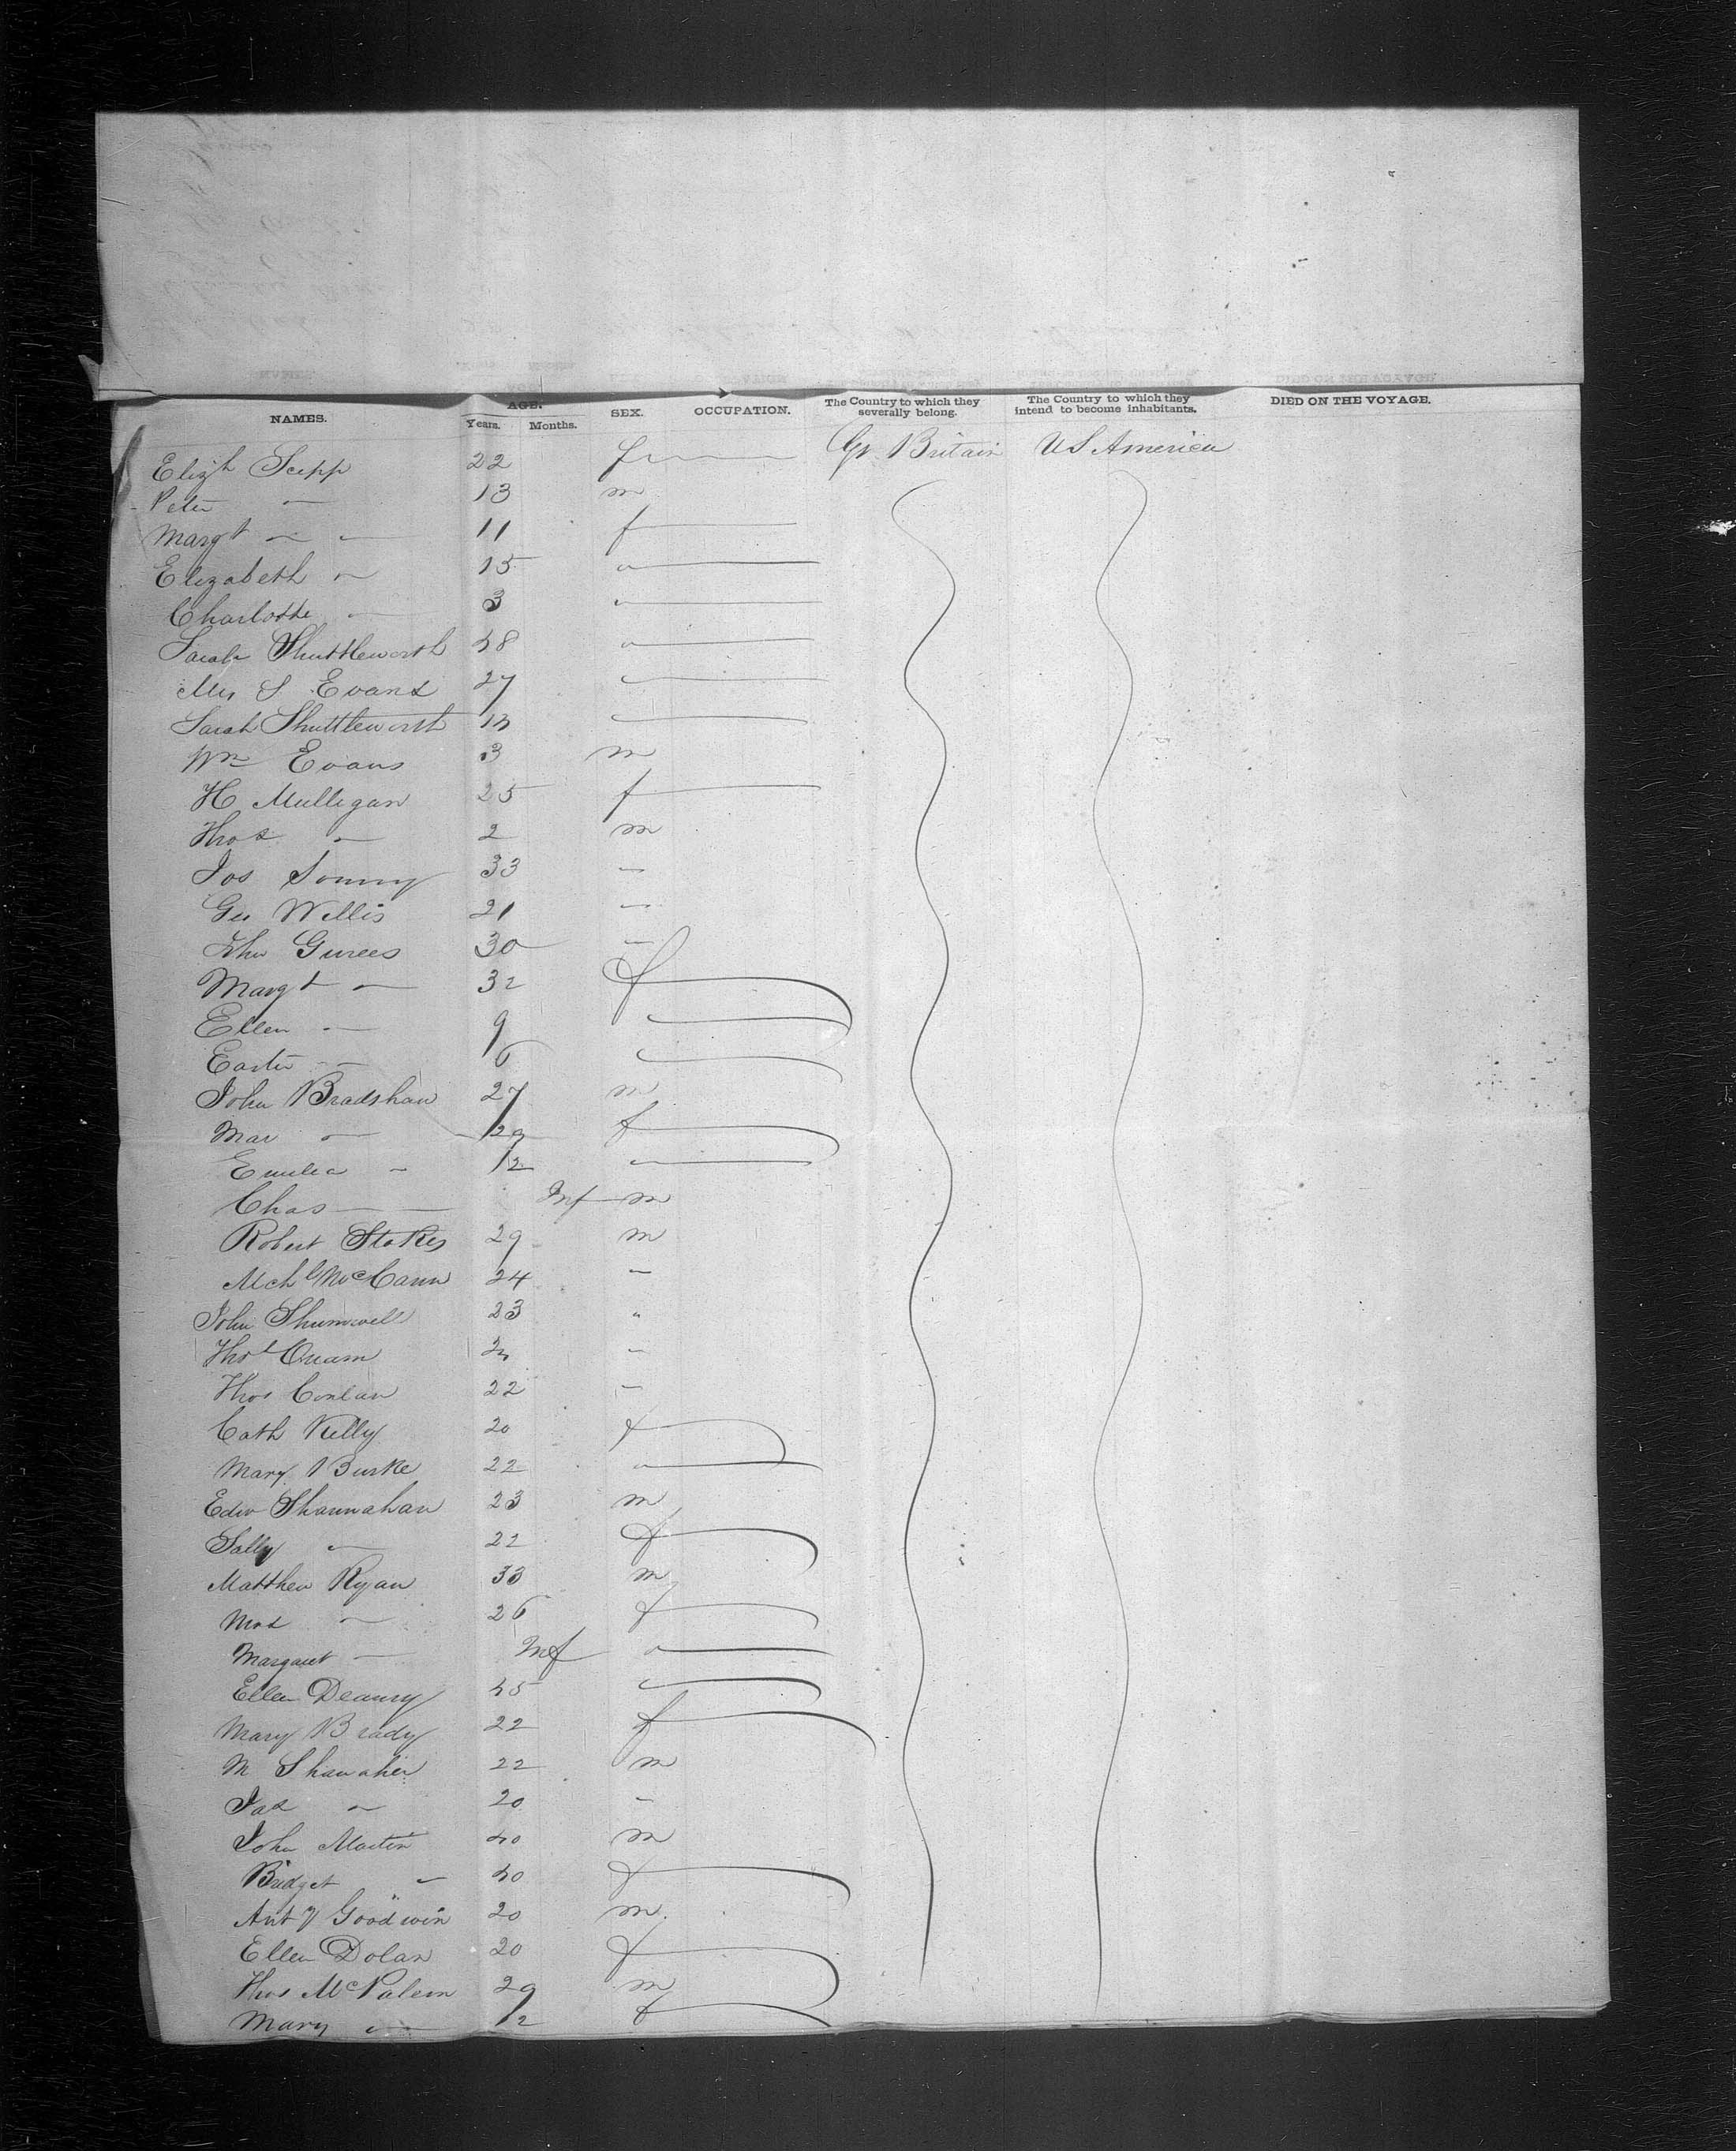 NAMES. AGE. Years. Months. SEX. OCCUPATION. The Country to which they severally belong. The Country to which they intend to become inhabitants. DIED ON THE VOYAGE.
Elizh Scepp 22 f Gr. Britain US America
Peter — 13 m
Margt — 11 f
Elizabeth " 15 "
Charlotte — 3 "
Sarah Shuttleworth 48 "
Mrs S Evans 27 "
Sarah Shuttleworth "
Wm Evans 3 m
H Mulligan 25 f
Thos " 2 m
Jos 33 "
Geo Willis 21 "
Jhn 30 "
Margt — 32 f
Ellen — 9 "
Ester — 6 "
John Bradshaw 27 m
Mar — 29 f
Emilea " 12 "
Chas — Inf m
Robert Stokes 29 m
Mchl McCann 24 "
John 23 "
Thos "
Thos Conlan 22 "
Cath Kelly 20 f
Mary Burke 22 "
Edw Shannahan 23 m
Sally — 22 f
Matthew Ryan 33 m
Mrs — 26 f
Margaret — Inf "
Ellen 45 "
Mary Brady 22 f
M 22 m
Jas " 20 "
John Martin 40 m
Bridget " 40 f
Anty Goodwin 20 m
Ellen Dolan 20 f
Thos 29 m
Mary — f